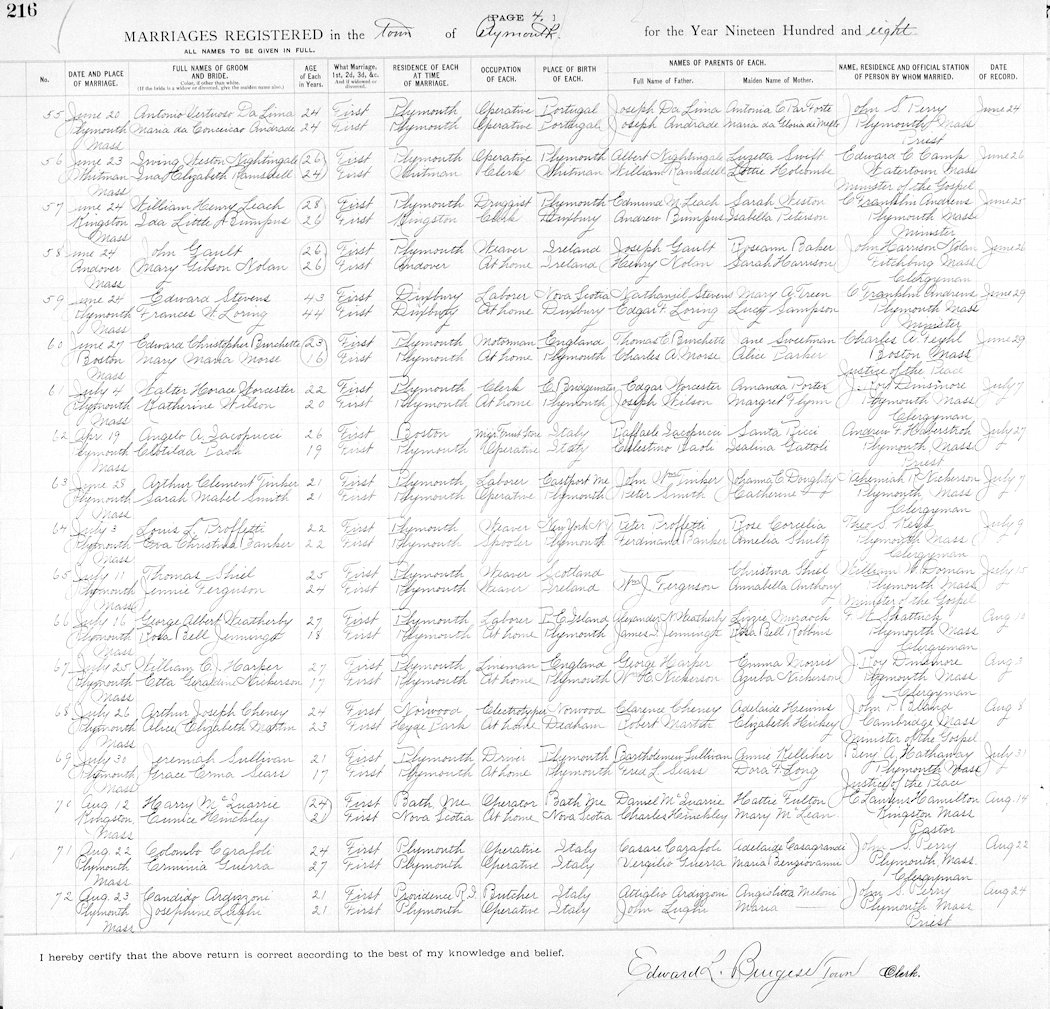 216
[PAGE 4.]
MARRIAGES REGISTERED in the Town of Plymouth for the Year Nineteen Hundred and eight
ALL NAMES TO BE GIVEN IN FULL.
No. DATE AND PLACE OF MARRIAGE. FULL NAMES OF GROOM AND BRIDE. Color, if other than white. (If the bride is a widow or divorced, give the maiden name also.) AGE of Each in Years. What Marriage, 1st, 2d, 3d, &c. And if widowed or divorced. RESIDENCE OF EACH AT TIME OF MARRIAGE. OCCUPATION OF EACH. PLACE OF BIRTH OF EACH. NAMES OF PARENTS OF EACH. Full Name of Father. Maiden Name of Mother. NAME, RESIDENCE AND OFFICIAL STATION OF PERSON BY WHOM MARRIED. DATE OF RECORD.
55 June 20 Antonio Da Lima 24 First Plymouth Operative Portugal Joseph Da Lima Antonia C John S. Perry June 24
Plymouth Maria da Conceicao Andrade 24 First Plymouth Operative Portugal Joseph Andrade Maria da Gloria de Plymouth Mass
Mass Priest
56 June 23 Irving Weston Nightingale 26 First Plymouth Operative Plymouth Albert Nightingale Luzetta Swift Edward C Camp June 26
Whitman Ina Elizabeth Ramsdell 24 First Whitman Clerk Whitman William Ramsdell Lottie Holcombe Watertown Mass
Mass Minister of the Gospel
57 June 24 William Henry Leach 28 First Plymouth Druggist Plymouth Edmund M Leach Sarah Weston C Franklin Andrews June 25
Kingston Ida Little Bumpus 26 First Kingston Clerk Duxbury Andrew Bumpus Isabella Peterson Plymouth Mass
Mass Minister
58 June 24 John Gault 26 First Plymouth Weaver Ireland Joseph Gault Roseann Baker John Harrison Nolan June 26
Andover Mary Gibson Nolan 26 First Andover At home Ireland Henry Nolan Sarah Harrison Fitchburg Mass
Mass Clergyman
59 June 24 Edward Stevens 43 First Duxbury Laborer Nova Scotia Nathaniel Stevens Mary A. Green C Franklin Andrews June 29
Plymouth Frances W Loring 44 First Duxbury At home Duxbury Edgar F Loring Lucy Sampson Plymouth Mass
Mass Minister
60 June 27 Edward Christopher Burchette 23 First Plymouth Motorman England Thomas E Burchette Jane Sweetman Charles A. June 29
Boston Mary Maria Morse 16 First Plymouth At home Plymouth Charles A Morse Alice Barker Boston Mass
Mass Justice of the Peace
61 July 4 Walter Horace Worcester 22 First Plymouth Clerk E. Bridgewater Edgar Worcester Amanda Porter J. Roy Dinsmore July 7
Plymouth Katherine Wilson 20 First Plymouth At home Plymouth Joseph Wilson Margret Flynn Plymouth Mass
Mass Clergyman
62 Apr 19 Angelo A. Iacopucci 26 First Boston Mgr Fruit Store Italy Raffaele Iacopucci Santa Ricci Andrew F July 27
Plymouth Clotilda Paoli 19 First Plymouth Operative Italy Celestino Paoli Isalina Gattoli Plymouth Mass
Mass Priest
63 June 28 Arthur Clement Timber 21 First Plymouth Laborer Eastport Me John Wm Timber Johanna E Doughty Nehemiah P Nickerson July 7
Plymouth Sarah Mabel Smith 21 First Plymouth Operative Plymouth Peter Smith Catherine Plymouth Mass
Mass Clergyman
64 July 3 Louis L. Proffetti 22 First Plymouth Weaver New York N.Y. Peter Proffetti Rose Cornelia Theo S. July 9
Plymouth Eva Christina Banker 22 First Plymouth Spooler Plymouth Ferdinand Banker Amelia Shultz Plymouth Mass
Mass Clergyman
65 July 11 Thomas Shiel 25 First Plymouth Weaver Scotland Christina Shiel William W. Dornan July 15
Plymouth Jennie Ferguson 24 First Plymouth Weaver Ireland Wm J. Ferguson Annabella Anthony Plymouth Mass
Mass Minister of the Gospel
66 July 16 George Albert Weatherby 27 First Plymouth Laborer P. E. Island Alexander N Weatherby Lizzie Murdock F. W. Shattuck Aug 10
Plymouth Rosa Bell Jennings 18 First Plymouth At home Plymouth James Jennings Rosa Bell Robbins Plymouth Mass
Mass Clergyman
67 July 25 William C. Harper 27 First Plymouth Lineman England George Harper Emma Morris J. Roy Dinsmore Aug 3
Plymouth Etta Geraldine Nickerson 17 First Plymouth At home Plymouth Wm H. Nickerson Azuba Nickerson Plymouth Mass
Mass Clergyman
68 July 26 Arthur Joseph Cheney 24 First Norwood Electrotyper Norwood Clarence Cheney Adelaide John P Aug 8
Plymouth Alice Elizabeth Martin 23 First Hyde Park At home Dedham Robert Martin Elizabeth Hickey Cambridge Mass
Mass Minister of the Gospel
69 July 30 Jeremiah Sullivan 21 First Plymouth Driver Plymouth Bartholemew Sullivan Annie Kelliher Benj A. Hathaway July 31
Plymouth Grace Erma Sears 17 First Plymouth At home Plymouth Fred L Sears Dora F Long Plymouth Mass
Mass Justice of the Peace
70 Aug 12 Harry McQuarrie 24 First Bath Me. Operator Bath Me Daniel McQuarrie Hattie Fulton Hamilton Aug. 14
Kingston Eunice Hinckley 21 First Nova Scotia At home Nova Scotia Charles Hinckley Mary McLean Kingston Mass
Mass Pastor
71 Aug. 22 Colombo Carafoli 24 First Plymouth Operative Italy Casare Carafoli Adelaide Casagrande John S. Perry Aug 22
Plymouth Erminia Guerra 27 First Plymouth Operative Italy Vergilio Guerra Maria Bengiovanni Plymouth Mass.
Mass Clergyman
72 Aug. 23 Candido Ardizzoni 21 First Providence R.I. Butcher Italy Attiglio Ardizzoni Angiolitta Meloni John S. Perry Aug 24
Plymouth Josephine Lughi 21 First Plymouth Operative Italy John Lughi Maria Plymouth Mass
Mass Priest
I hereby certify that the above return is correct according to the best of my knowledge and belief.
Edward L. Burgess Town Clerk.